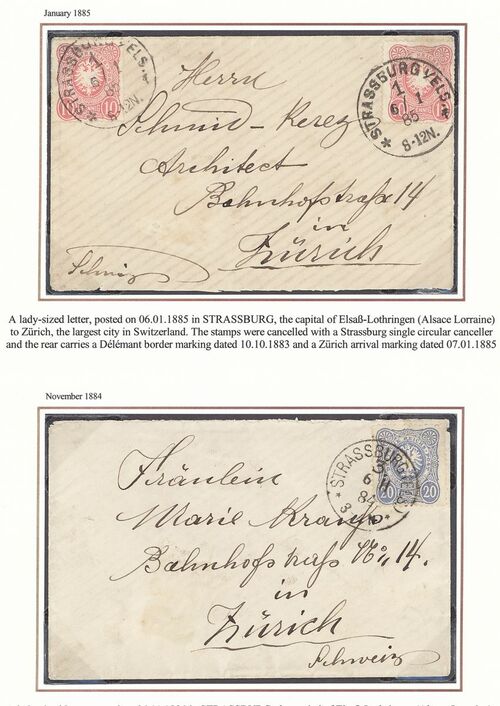 January 1885
STRASSBURG i/ELS.
1
6 1
85
8-12N.
10
STRASSBURG i/ELS.
1
6 1
85
8-12N.
Herrn
Schmid-Kerez
Architect
Bahnhofstraße 14
in
Zürich
Schweiz
A lady-sized letter, posted on 06.01.1885 in STRASSBURG, the capital of Elsaß-Lothringen (Alsace Lorraine)
to Zürich, the largest city in Switzerland. The stamps were cancelled with a Strassburg single circular canceller
and the rear carries a Délémant border marking dated 10.10.1883 and a Zürich arrival marking dated 07.01.1885
November 1884
STRASSBURG
6 11
84
20 20
Fräulein
Marie
Bahnhofstraße No. 14.
in
Zürich
Schweiz